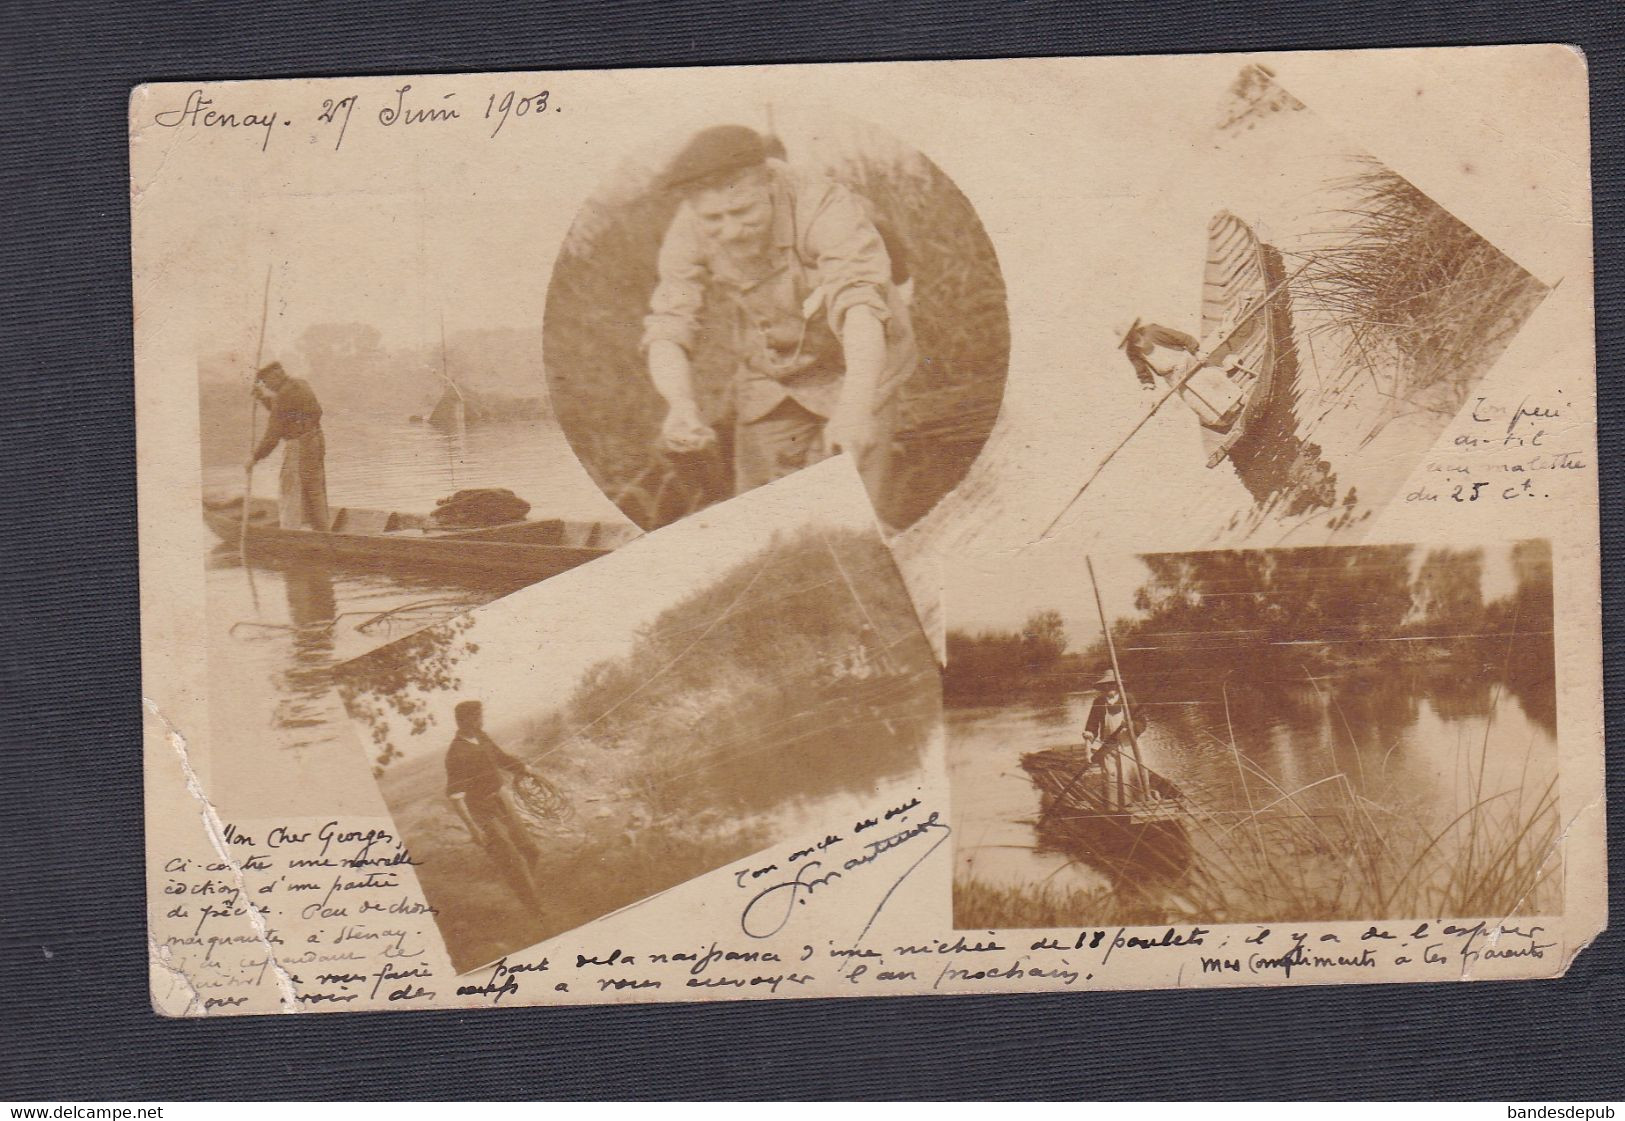 Stenay. 27 Juin 1903.
Ton père
as-t-il
reçu ma lettre
du 25 ct.
Mon Cher Georges,
Ci-contre une nouvelle
édition d'une partie
de pêche. Peu de choses
marquantes à Stenay.
J'ai cependant le
plaisir de vous faire part de la naissance d'une nichée de 18 poulets, il y a de l'espoir
pour avoir des œufs à vous envoyer l'an prochain.
Mes Compliments à tes parents
Ton oncle
delcampe.net
bandesdepub